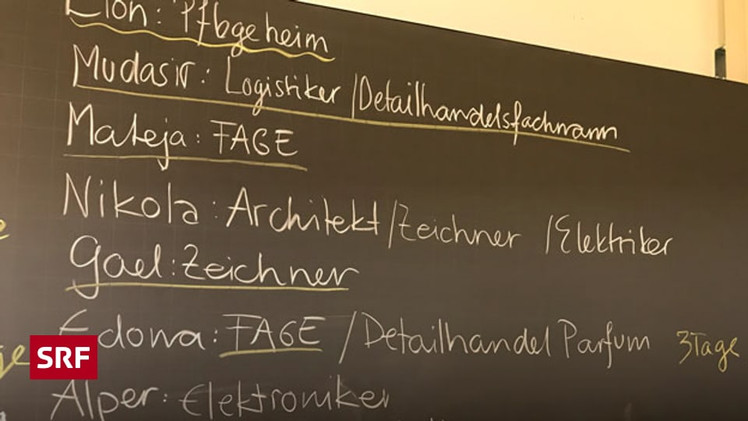 Elon: Pflegeheim
Mudasir: Logistiker/Detailhandelsfachmann
Mateja: FAGE
Nikola: Architekt/Zeichner /Elektriker
Gael: Zeichner
Edona: FAGE / Detailhandel Parfum 3 Tage
SRF
Alper: Elektroniker